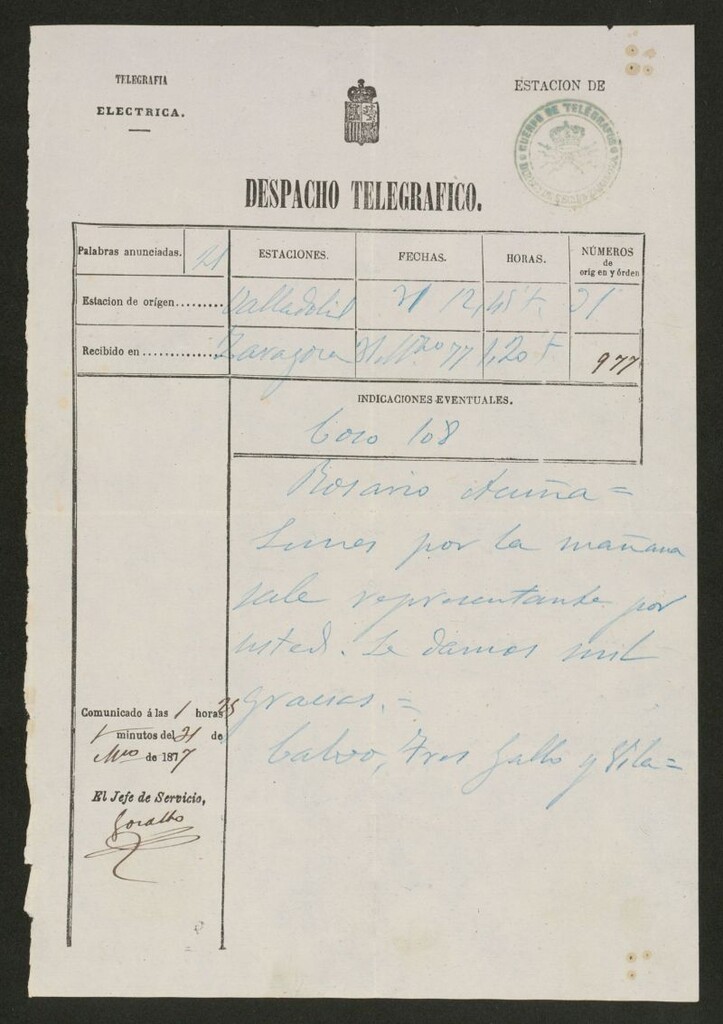 TELEGRAFIA
ELECTRICA.
ESTACION DE
CUERPO DE TELÉGRAFOS
DESPACHO TELEGRAFICO.
Palabras anunciadas. 21
ESTACIONES. FECHAS. HORAS. NÚMEROS
de
orig en y órden
Estacion de orígen......... Valladolid 31 12,45 t. 31
Recibido en ............. Zaragoza 31 Mzo 77 1,20 t 977
INDICACIONES EVENTUALES.
Coso 108
Rosario Acuña =
Lunes por la mañana
sale representante por
usted. Le damos mil
gracias. =
Calvo, Gallo y Vila =
Comunicado á las 1 horas 25
minutos del 31 de
Mzo de 1877
El Jefe de Servicio,